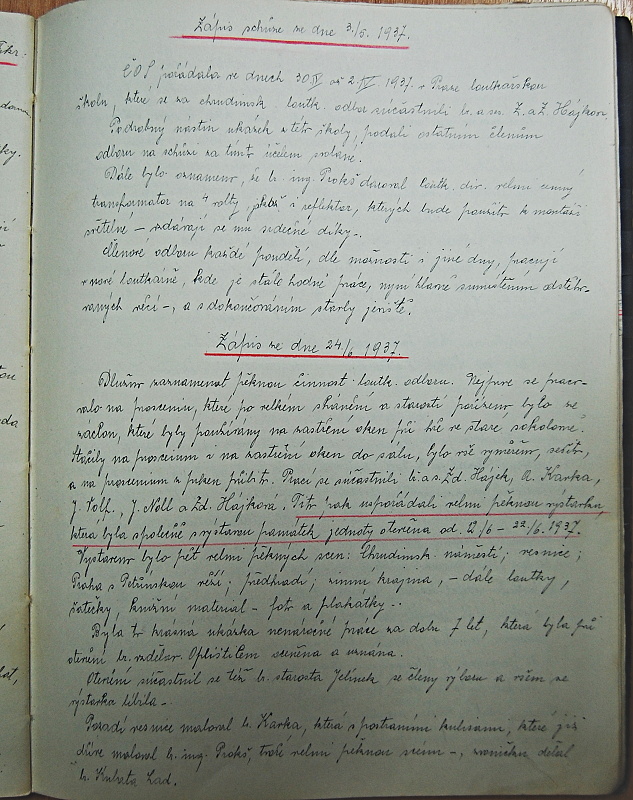 Zápis schůze ze dne 3./5. 1937.
ČOS pořádala ve dnech 30/IV až 2./V 1937. v Praze loutkářskou
školu, které se za chrudimsk. loutk. odbor súčastnili br. a ses. Z. a Z. Hájkovi,
Podrobný nástin ukázek z této školy, podali ostatním členům
odboru na schůzi za tímto účelem svolané.
Dále bylo oznámeno, že br. ing. Prokš daroval loutk. div. velmi cenný
transformator na 4 volty, i reflektor, kterých bude použito k montáži
světelné – vzdávají se mu srdečné díky –.
Členové odboru každé pondělí, dle možnosti i jiné dny, pracují
v nové loutkárně, kde je stálo hodně práce, nyní hlavně s umístěním odstěho-
vaných věcí –, a s dokončováním stavby jeviště.
Zápis ze dne 24./6. 1937.
Dlužno zaznamenat pěknou činnost loutk. odboru. Nejprve se praco-
valo na prosceniu, které po velkém shánění a starosti pořízeno bylo ze
záclon, které byly používány na zastření oken při bile ve staré sokolovně.
Stačily na proscenium i na zastření oken do salu, bylo vše vyměřeno, sešito,
a na proscenium z prken přibito. Prací se súčastnili br. a s. Zd. Hájek, A. Karka,
J. Volf., J. Noll a Zd. Hájková. Tito pak uspořádali velmi pěknou výstavku,
která byla společně s výstavou památek jednoty otevřena od. 12/6 – 22./6. 1937.
Vystaveno bylo pět velmi pěkných scen: Chrudimsk. náměstí; vesnice;
Praha s Petřínskou věží; předhradí; zimní krajina, – dále loutky,
šatečky, knižní material – foto a plakátky –.
Byla to krásná ukázka nenáročné práce za dobu 7 let, která byla při
otevření br. vzdělav. Oplištilem oceněna a uznána.
Otevření súčastnil se též br. starosta Jelínek se členy výboru a všem se
výstavka líbila –.
Pozadí vesnice maloval br. Karka, která s postraními kulisami, které již
dříve maloval br. ing. Prokš, tvoří velmi pěknou scénu –, zvoničku dělal
br. Kubata Lad.